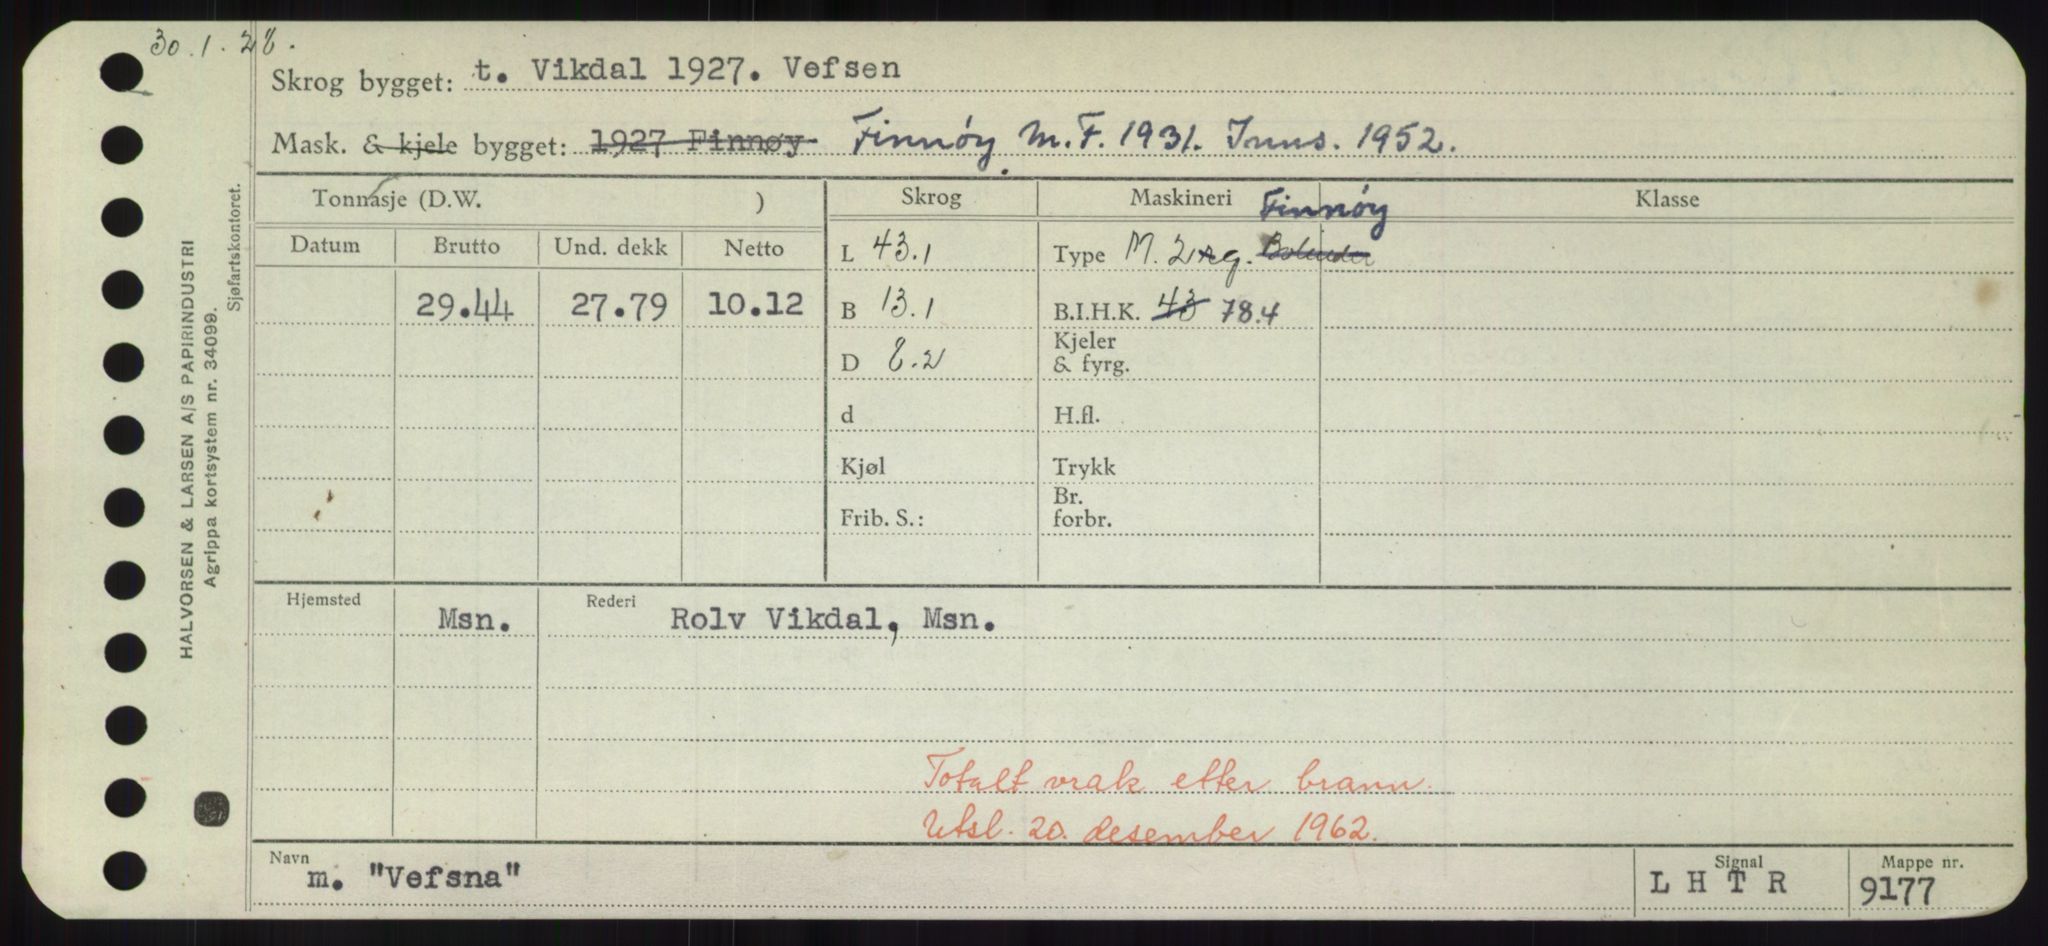 30.1.28.
Skrog bygget: t. Vikdal 1927. Vefsen
Mask. & kjele bygget: 1927 Finnøy Finnøy M.F. 1931. Inns. 1952.
Tonnasje (D.W. ) Skrog Maskineri Klasse
Finnøy
Datum Brutto Und. dekk Netto L 43.1 Type M. 2 sg. Bolinder
29.44 27.79 10.12 B 13.1 B.I.H.K. 43 78.4
D 8.2 Kjeler & fyrg.
d H.fl.
Kjøl Trykk
Frib. S.: Br. forbr.
Hjemsted Msn. Rederi Rolv Vikdal, Msn.
Totalt vrak etter brann.
Utsl. 20. desember 1962.
Navn m. "Vefsna" Signal L H T R Mappe nr. 9177
HALVORSEN & LARSEN A/S PAPIRINDUSTRI
Agrippa kortsystem nr. 34099.
Sjøfartskontoret.